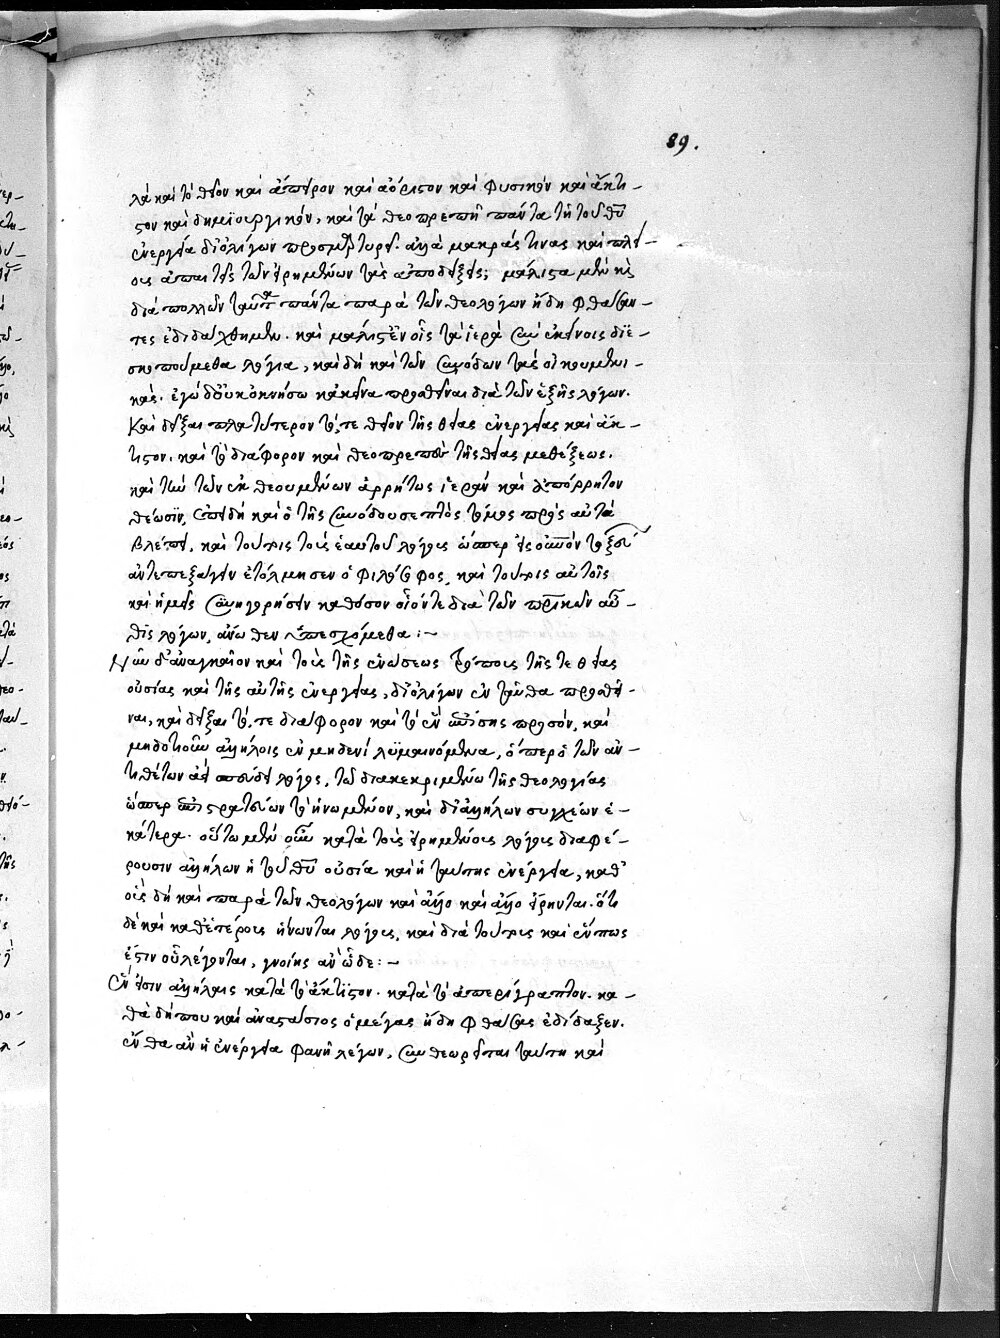 89.
λὰ καὶ τὸ θεῖον καὶ ἄπειρον καὶ ἀόριστον καὶ φυσικὸν καὶ ἄκτι-
στον καὶ δημιουργικόν, καὶ τὰ θεοπρεπῆ πάντα τῇ τοῦ θυ
ἐνεργεία δι' ὀλίγων προσμαρτυρεῖ. ἀλλὰ μακράς τινας καὶ πλεί-
ους ἀπαιτεῖς τῶν εἰρημένων τὰς ἀποδείξεις; μάλιστα μὲν
διὰ πολλῶν πάντα παρὰ τῶν θεολόγων ἤδη φθάσαν-
τες ἐδιδάχθημεν. καὶ μάλιστ' ἐν οἷς τὰ ἱερὰ σὺν ἐκείνοις διε-
σκοπούμεθα λόγια, καὶ δὴ καὶ τῶν συνόδων τὰς οἰκουμενι-
κάς. ἐγὼ δ' οὐκ ὀκνήσω κἀκεῖνα προθεῖναι διὰ τῶν ἑξῆς λόγων.
Καὶ δεῖξαι πλατύτερον τό, τε θεῖον τῆς θείας ἐνεργείας καὶ ἄκ-
τιστον. καὶ τὸ διάφορον καὶ θεοπρεπὲς τῆς θείας μεθέξεως.
καὶ τὴν τῶν ἐκθεουμένων ἀρρήτως ἱερὰν καὶ ἀπόρρητον
θέωσιν, ἐπειδὴ καὶ ὁ τῆς συνόδου σεπτὸς τόμος πρὸς αὐτὰ
βλέπει. καὶ τούτοις τοῖς ἑαυτοῦ λόγοις ὥσπερ
ἀντεπεξάγειν ἐτόλμησεν ὁ φιλόσοφος, καὶ τούτοις αὐτοῖς
καὶ ἡμεῖς συνηγορήσειν καθόσον οἷόν τε διὰ τῶν πρικῶν αὖ-
θις λόγων, ἄνωθεν ὑπεσχόμεθα :~
Νῦν δ' ἀναγκαῖον καὶ τοῖς τῆς ἑνώσεως τρόποις τῆς τε θείας
οὐσίας καὶ τῆς αὐτῆς ἐνεργείας, δι' ὀλίγων ἐνταῦθα προθεῖ-
ναι, καὶ δεῖξαι τό, τε διάφορον καὶ τὸ ἓν ἐπίσης προσόν, καὶ
μηδοτιοῦν ἀλλήλοις ἐν μηδενὶ λυμαινόμενα, ὅπερ ὁ τῶν ἀν-
τιθέτων ἀεὶ σπεύδει λόγος, τῷ διακεκριμένῳ τῆς θεολογίας
ὥσπερ ἐπιστρατεύων τὸ ἡνωμένον, καὶ δι' ἀλλήλων συγχέων ἑ-
κάτερα. οὕτω μὲν οὖν κατὰ τοὺς εἰρημένους λόγους διαφέ-
ρουσιν ἀλλήλων ἡ τοῦ θυ οὐσία καὶ ἡ ταύτης ἐνέργεια, καθ'
οὓς δὴ καὶ παρὰ τῶν θεολόγων καὶ ἄλλο καὶ ἄλλο εἴρηνται. ὅτι
δὲ καὶ καθ' ἑτέρους ἥνωνται λόγους, καὶ διὰ τούτοις καὶ ἕν πως
ἐστιν οὗ λέγονται, γνοίης ἂν ὧδε :~
Ἕν εἰσιν ἀλλήλαις κατὰ τὸ ἄκτιστον. κατὰ τὸ ἀπερίγραπτον. κα-
θὰ δήπου καὶ ἀναστάσιος ὁ μέγας ἤδη φθάσας ἐδίδαξεν.
ἔνθα ἂν ἡ ἐνέργεια φανῇ λέγων, συνθεωρεῖται ταύτῃ καὶ